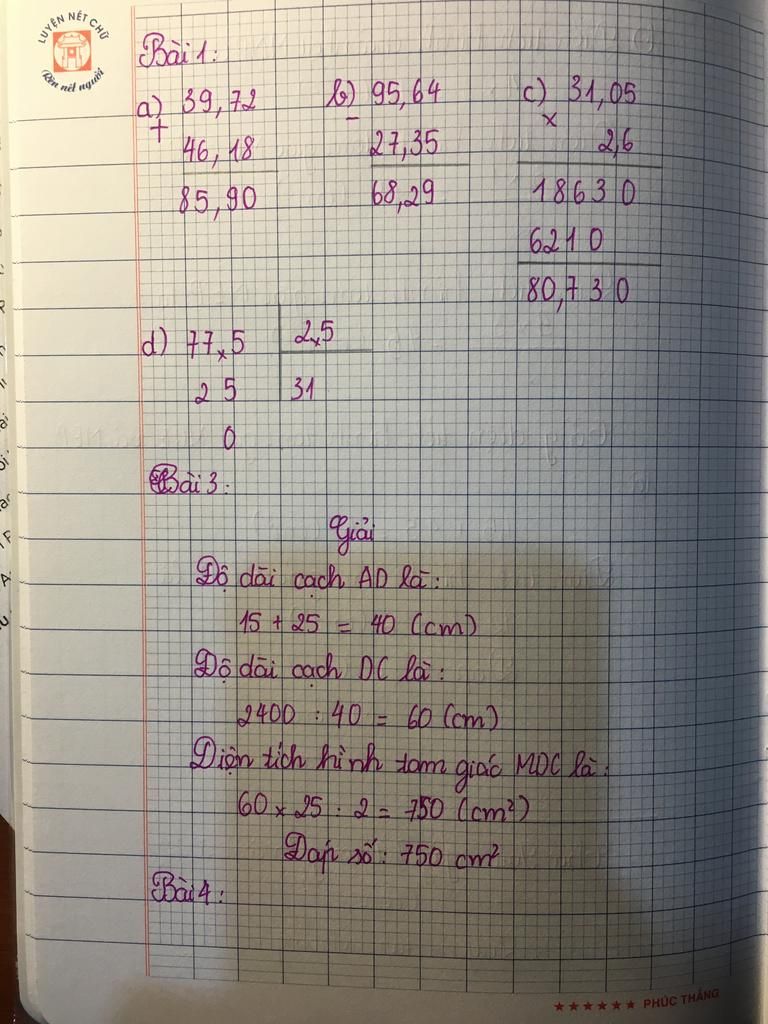 LUYỆN NÉT CHỮ
Rèn nết người
Bài 1:
a) 39,72 b) 95,64 c) 31,05
+ - x
46,18 27,35 2,6
85,90 68,29 18630
6210
80,730
d) 77,5 2,5
25 31
0
Bài 3:
Giải
Độ dài cạch AD là:
15 + 25 = 40 (cm)
Độ dài cạch DC là:
2400 : 40 = 60 (cm)
Diện tích hình tam giác MDC là:
60 x 25 : 2 = 750 (cm²)
Đáp số: 750 cm²
Bài 4:
PHÚC THẮNG